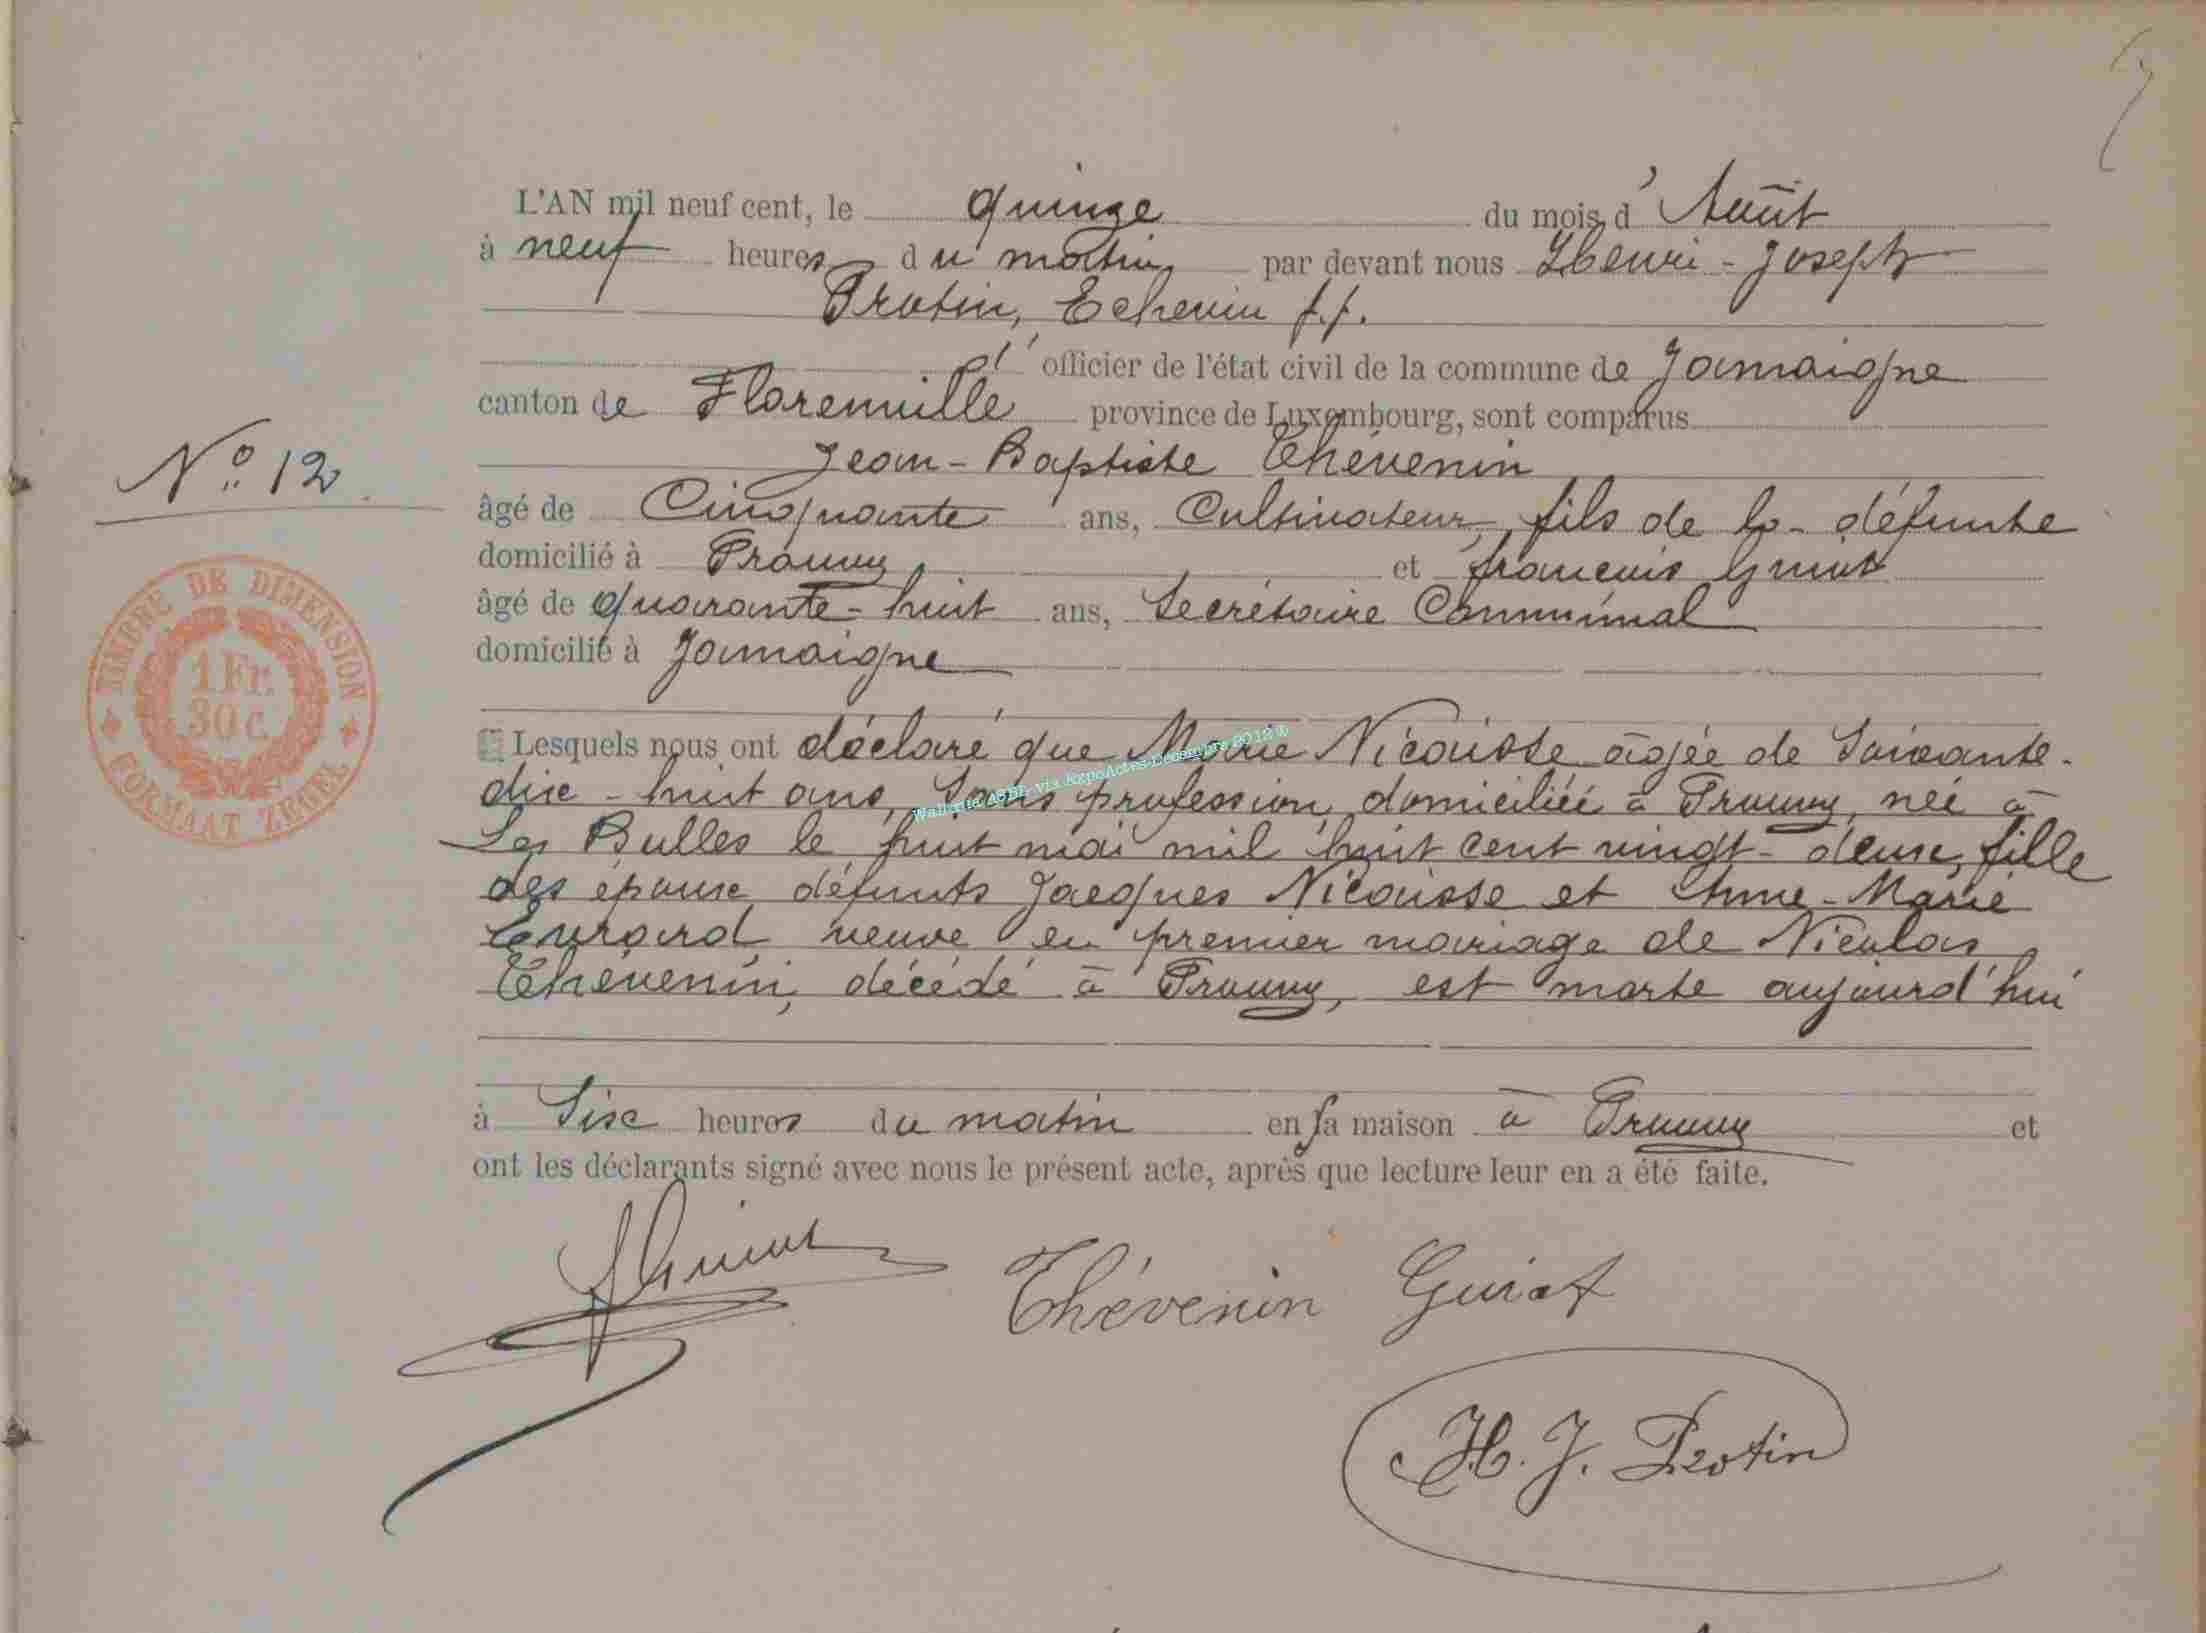 L'AN mil neuf cent, le quinze du mois d'Août
à neuf heures du matin par devant nous Henri-Joseph
Protin, Echevin f.f.
d' officier de l'état civil de la commune de Jamoigne
canton de Florenville province de Luxembourg, sont comparus
Jean-Baptiste Thévenin
N° 12
âgé de Cinquante ans, Cultivateur, fils de la défunte
domicilié à Prouvy et françois Guiot
âgé de quarante-huit ans, Secrétaire Communal
domicilié à Jamoigne
TIMBRE DE DIMENSION
1 Fr.
30 c.
FORMAAT ZEGEL
Lesquels nous ont déclaré que Marie Nicaisse âgée de Soixante-
dix-huit ans, Sans profession, domiciliée à Prouvy, née à
Les Bulles le huit mai mil huit cent vingt-deux, fille
des époux défunts Jacques Nicaisse et Anne-Marie
Evrard veuve en premier mariage de Nicolas
Thévenin, décédé à Prouvy, est morte aujourd'hui
Wallonie ASBL via ExpoActes-Décembre 2012 ©
à Six heures du matin en sa maison à Prouvy et
ont les déclarants signé avec nous le présent acte, après que lecture leur en a été faite.
Thévenin Guiot
H. J. Protin